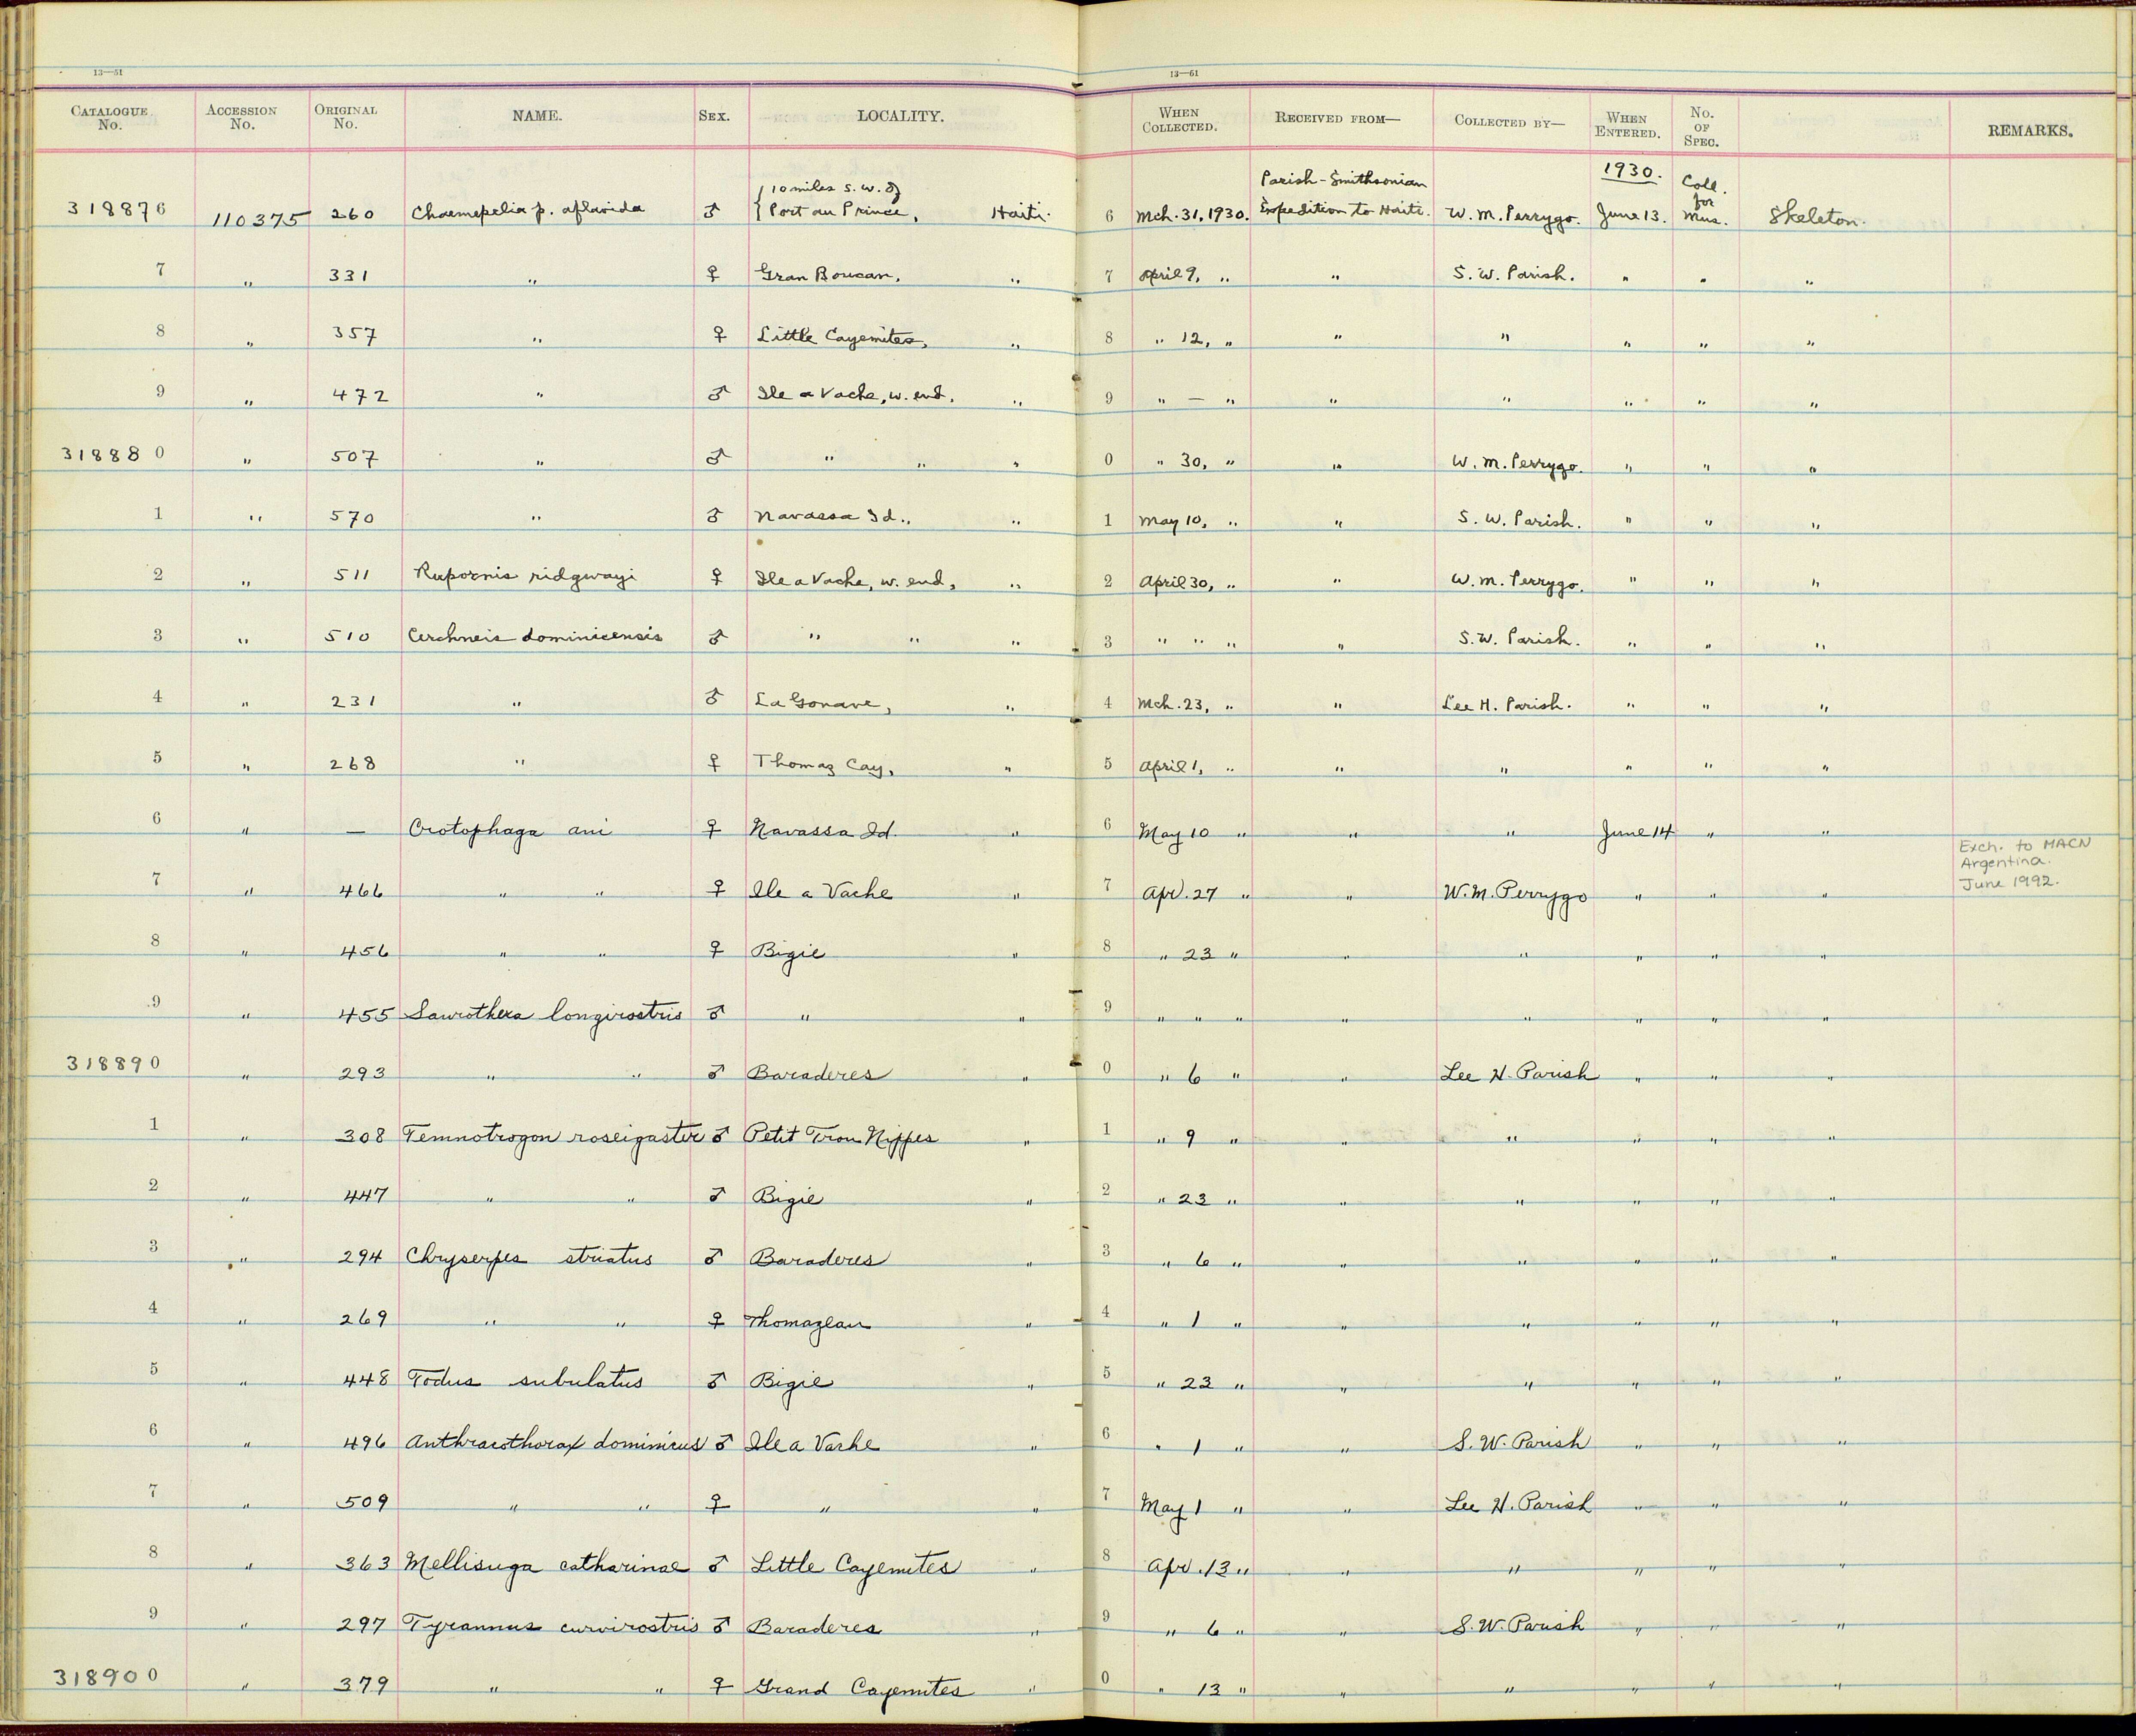 13—51 13—61
CATALOGUE No. ACCESSION No. ORIGINAL No. NAME. SEX. LOCALITY. WHEN COLLECTED. RECEIVED FROM— COLLECTED BY— WHEN ENTERED. No. OF SPEC. REMARKS.
318876 110375 260 Chaemepelia p. aflavida ♂ {10 miles S.W. of Port au Prince, Haiti. 6 Mch. 31, 1930. Parish-Smithsonian Expedition to Haiti. W. M. Perrygo. 1930. June 13. Coll. for Mus. Skeleton.
7 " 331 " ♀ Gran Boucan, " 7 April 9, " " S. W. Parish. " " "
8 " 357 " ♀ Little Cayemites, " 8 " 12, " " " " " "
9 " 472 " ♂ Ile a Vache, w. end, " 9 " — " " " " " "
318880 " 507 " ♂ " " " 0 " 30, " " W. M. Perrygo. " " "
1 " 570 " ♂ Navassa Id., " 1 May 10, " " S. W. Parish. " " "
2 " 511 Rupornis ridgwayi ♀ Ile a Vache, w. end, " 2 April 30, " " W. M. Perrygo. " " "
3 " 510 Cerchneis dominicensis ♂ " " " 3 " " " " S. W. Parish. " " "
4 " 231 " ♂ La Gonave, " 4 Mch. 23, " " Lee H. Parish. " " "
5 " 268 " ♀ Thomaz Cay, " 5 April 1, " " " " " "
6 " — Crotophaga ani ♀ Navassa Id " 6 May 10 " " " June 14 " "
7 " 466 " " ♀ Ile a Vache " 7 Apr. 27 " " W. M. Perrygo " " " Exch. to MACN Argentina. June 1992.
8 " 456 " " ♀ Bigie " 8 " 23 " " " " " "
9 " 455 Saurothera longirostris ♂ " " 9 " " " " " " " "
318890 " 293 " " ♂ Baraderes " 0 " 6 " " Lee H. Parish " " "
1 " 308 Temnotrogon roseigaster ♂ Petit Trou Nippes " 1 " 9 " " " " " "
2 " 447 " " ♂ Bigie " 2 " 23 " " " " " "
3 " 294 Chryserpes striatus ♂ Baraderes " 3 " 6 " " " " " "
4 " 269 " " ♀ Thomazeau " 4 " 1 " " " " " "
5 " 448 Todus subulatus ♂ Bigie " 5 " 23 " " " " " "
6 " 496 Anthracothorax dominicus ♂ Ile a Vache " 6 " 1 " " S. W. Parish " " "
7 " 509 " " ♀ " " 7 May 1 " " Lee H. Parish " " "
8 " 363 Mellisuga catharinae ♂ Little Cayemites " 8 Apr. 13 " " " " " "
9 " 297 Tyrannus curvirostris ♂ Baraderes " 9 " 6 " " S. W. Parish " " "
318900 " 379 " " ♀ Grand Cayemites " 0 " 13 " " " " " "